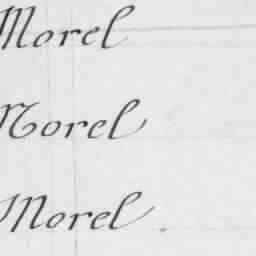 Morel
Norel
Morel